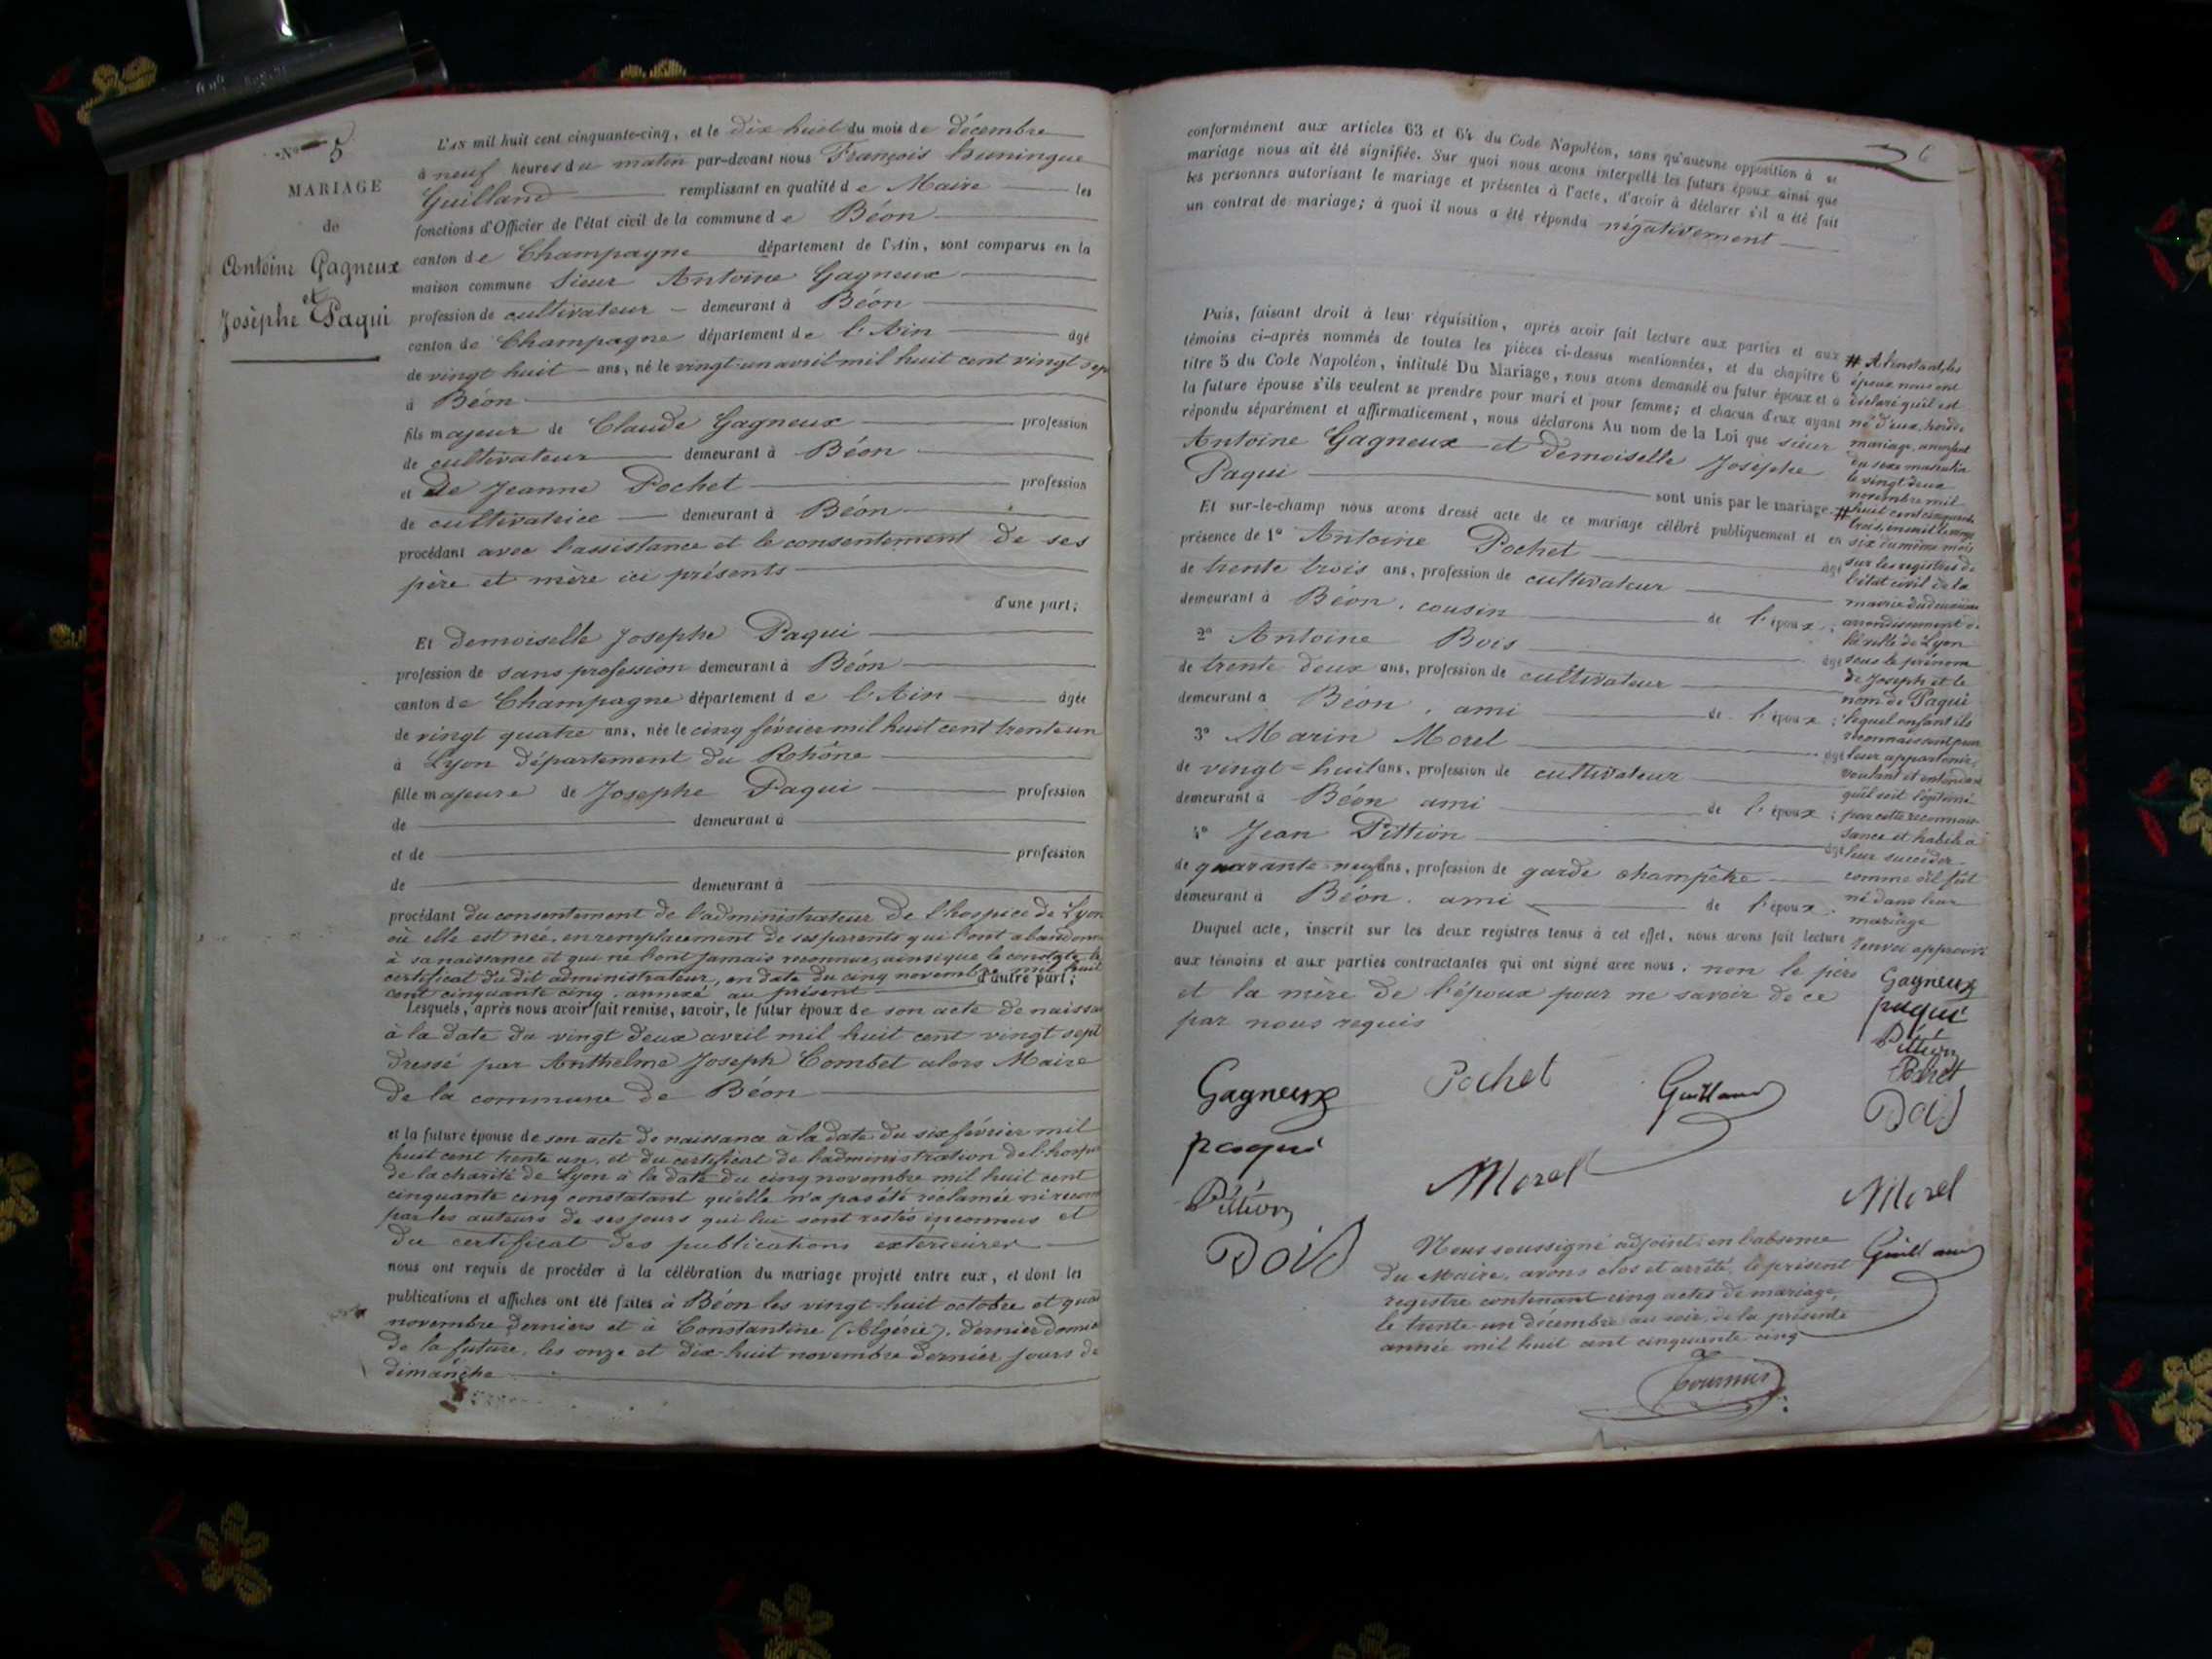 N° 5
MARIAGE
de
Antoine Gagneux
et
Josèphe Paqui
L'AN mil huit cent cinquante-cinq, et le dix huit du mois de décembre
à neuf heures du matin par-devant nous François huningue
Guilland remplissant en qualité de Maire les
fonctions d'Officier de l'état civil de la commune de Béon
canton de Champagne département de l'Ain, sont comparus en la
maison commune Sieur Antoine Gagneux
profession de cultivateur demeurant à Béon
canton de Champagne département de l'Ain âgé
de vingt huit ans, né le vingt-un avril mil huit cent vingt sept
à Béon
fils majeur de Claude Gagneux profession
de cultivateur demeurant à Béon
et de Jeanne Pochet profession
de cultivatrice demeurant à Béon
procédant avec l'assistance et le consentement de ses
père et mère ici présents
d'une part;
Et demoiselle Josephe Paqui
profession de sans profession demeurant à Béon
canton de Champagne département de l'Ain âgée
de vingt quatre ans, née le cinq février mil huit cent trente un
à Lyon département du Rohône
fille majeure de Josephe Paqui profession
de demeurant à
et de profession
de demeurant à
procédant du consentement de l'administrateur de l'hospice de Lyon
où elle est née, en remplacement de ses parents qui l'ont abandonné
à sa naissance et qui ne l'ont jamais reconnue, ainsi que le constate le
certificat du dit administrateur, en date du cinq novembre mil huit
d'autre part;
cent cinquante cinq, annexé au présent
Lesquels, après nous avoir fait remise, savoir, le futur époux de son acte de naissa
à la date du vingt deux avril mil huit cent vingt sept
dressé par Anthelme Joseph Combet alors Maire
de la commune de Béon
et la future épouse de son acte de naissance à la date du six février mil
huit cent trente un, et du certificat de l'administration de l'hospi
de la charité de Lyon à la date du cinq novembre mil huit cent
cinquante cinq constatant qu'elle n'a pas été réclamée ni reconn
par les auteurs de ses jours qui lui sont restés inconnus et
du certificat des publications exterieures
nous ont requis de procéder à la célébration du mariage projeté entre eux, et dont les
publications et affiches ont été faites à Béon les vingt-huit octobre et quat
novembre derniers et à Constantine (Algérie), dernier domic
de la future, les onze et dix-huit novembre dernier jours de
dimanche
6
conformément aux articles 63 et 64 du Code Napoléon, sans qu'aucune opposition à ce
mariage nous ait été signifiée. Sur quoi nous avons interpellé les futurs époux ainsi que
les personnes autorisant le mariage et présentes à l'acte, d'avoir à déclarer s'il a été fait
un contrat de mariage; à quoi il nous a été répondu négativement
Puis, faisant droit à leur réquisition, après avoir fait lecture aux parties et aux
témoins ci-après nommés de toutes les pièces ci-dessus mentionnées, et du chapitre 6
titre 5 du Code Napoléon, intitulé Du Mariage, nous avons demandé au futur époux et à
la future épouse s'ils veulent se prendre pour mari et pour femme; et chacun d'eux ayant
répondu séparément et affirmativement, nous déclarons Au nom de la Loi que sieur
Antoine Gagneux et demoiselle Josèphe
Paqui sont unis par le mariage #
Et sur-le-champ nous avons dressé acte de ce mariage célébré publiquement et en
présence de 1° Antoine Pochet âgé
de trente trois ans, profession de cultivateur
demeurant à Béon, cousin de l'époux;
2° Antoine Bois âgé
de trente deux ans, profession de cultivateur
demeurant à Béon, ami de l'époux;
3° Marin Morel âgé
de vingt-huit ans, profession de cultivateur
demeurant à Béon ami de l'époux;
4° Jean Pittion âgé
de quarante-neuf ans, profession de garde champêtre
demeurant à Béon. ami de l'époux.
Duquel acte, inscrit sur les deux registres tenus à cet effet, nous avons fait lecture
aux témoins et aux parties contractantes qui ont signé avec nous, non le père
et la mère de l'époux pour ne savoir de ce
par nous requis
# A l'instant, les
époux nous ont
déclaré qu'il est
né d'eux, hors de
mariage, un enfant
du sexe masculin
le vingt deux
novembre mil
huit cent cinquante
trois, inscrit le vingt
six du même mois
sur les registres de
l'état civil de la
mairie du deuxième
arrondissement de
la ville de Lyon
sous le prénom
de Joseph et le
nom de Paqui
lequel enfant ils
reconnaissent pour
leur appartenir,
voulant et entendant
qu'il soit légitimé
par cette reconnais
sance et habile à
leur succéder
comme s'il fût
né dans leur
mariage
renvoi approuvé
Gagneux
paqui
Pittion
Pochet
Bois
Morel
Guilland
Gagneux
Pochet
Guilland
paqui
Morel
Pittion
Bois
Nous soussigné adjoint en l'absence
du Maire, avons clos et arrêté, le présent
registre contenant cinq actes de mariage,
le trente-un décembre au soir, de la présente
année mil huit cent cinquante cinq
Tournier